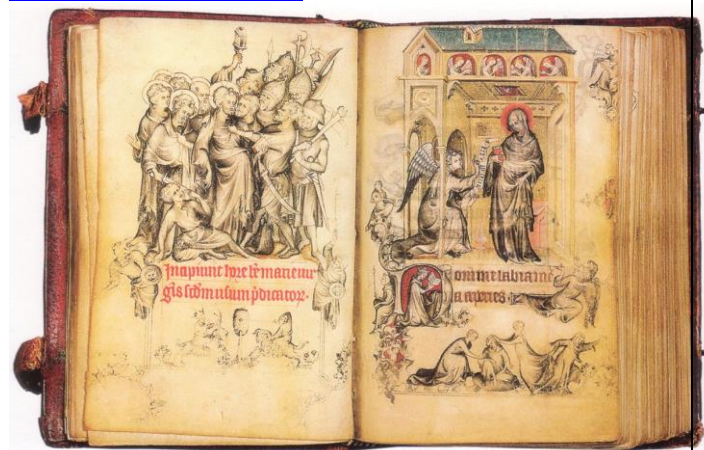 Incipiunt hore bt̄e marie uir
gīs scd̄m usum p̄dicator.
Domine labia me
a aperies.